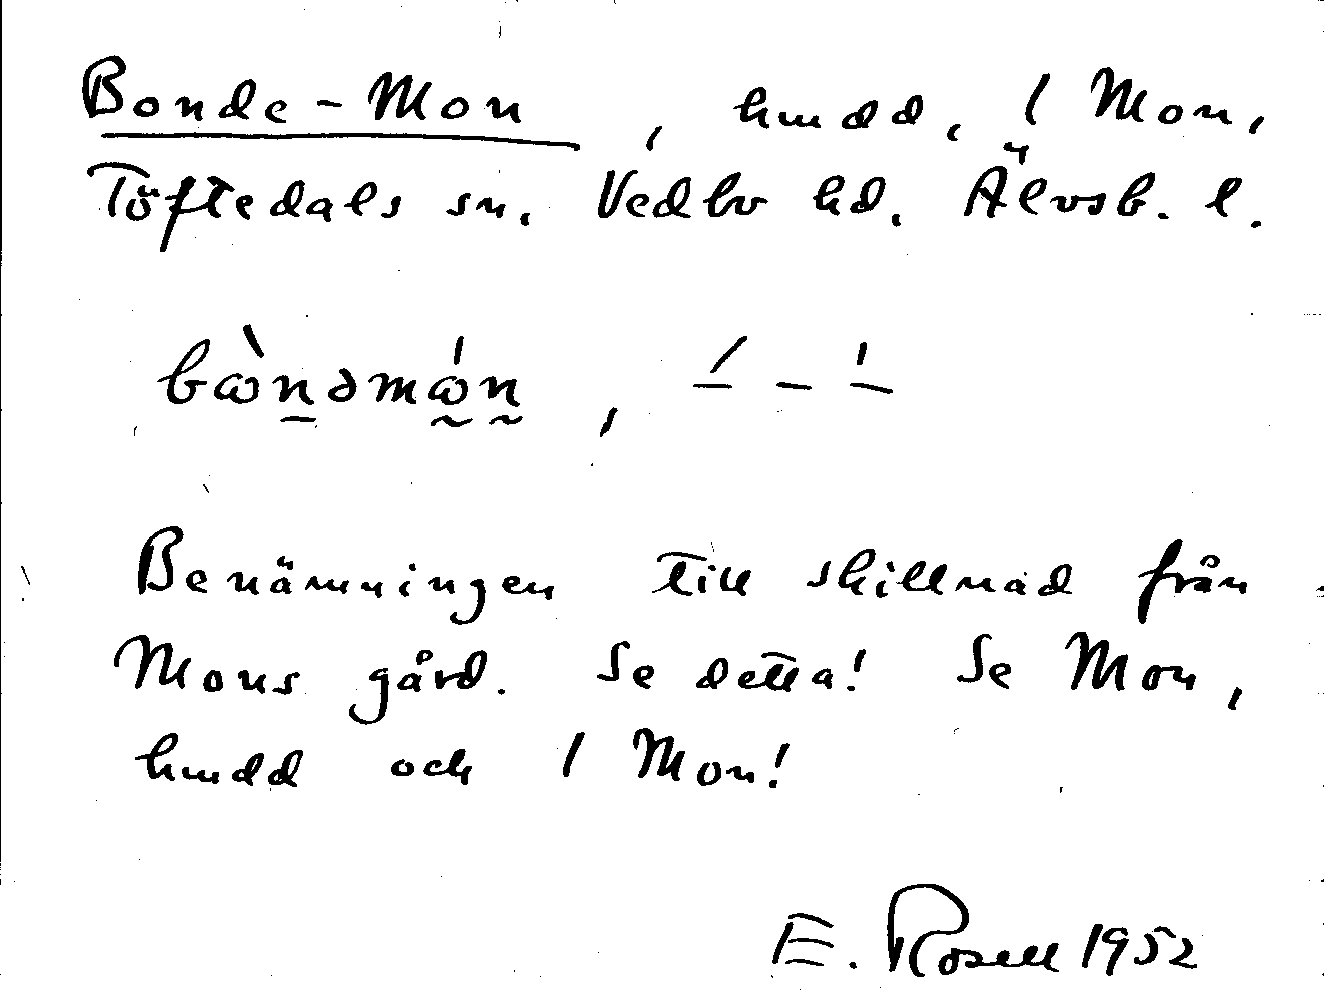 Bonde-Mon, hmdd, 1 Mon,
Töftedals sn. Vedbo hd. Älvsb. l.
bὼnəmώn, ∠ – ⊥
Benämningen till skillnad från
Mons gård. Se detta! Se Mon,
hmdd och 1 Mon!
E. Rosell 1952